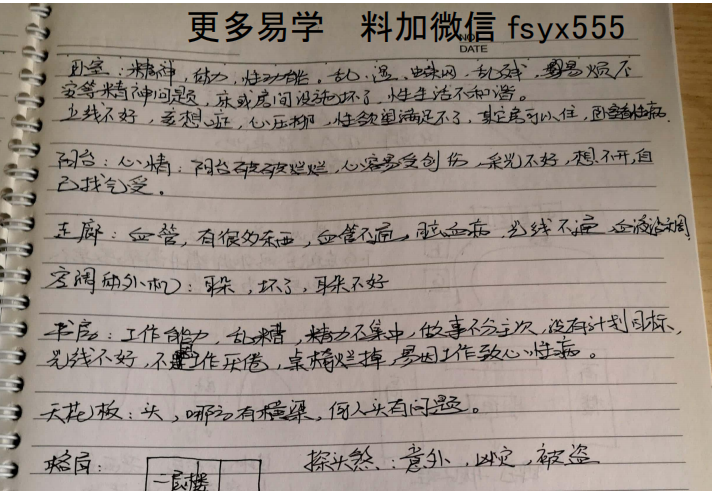 更多易学 料加微信 fsyx555
NO
DATE
卧室：精神，能力，性功能。乱，湿，蜘蛛网，乱残，易烦不
安等精神问题，床或房间设施坏了，性生活不和谐。
光线不好，妄想症，心压抑，性欲望满足不了，其它房可以住，卧室看性病.
阳台：心情；阳台破破烂烂，心容易受创伤，采光不好，想不开，自
己找气受。
走廊：血管，有很多东西，血管不通，脑血病，光线不通，血液
空调的外机：耳朵，坏了，耳朵不好
书房：工作能力，乱糟，精力不集中，做事不分主次，没有计划目标，
光线不好，不是工作厌倦，桌椅烂掉，易因工作致心性病。
天花板：头，哪方有横梁，何人头有问题。
格局： 二层楼 探头煞：意外，凶灾，被盗